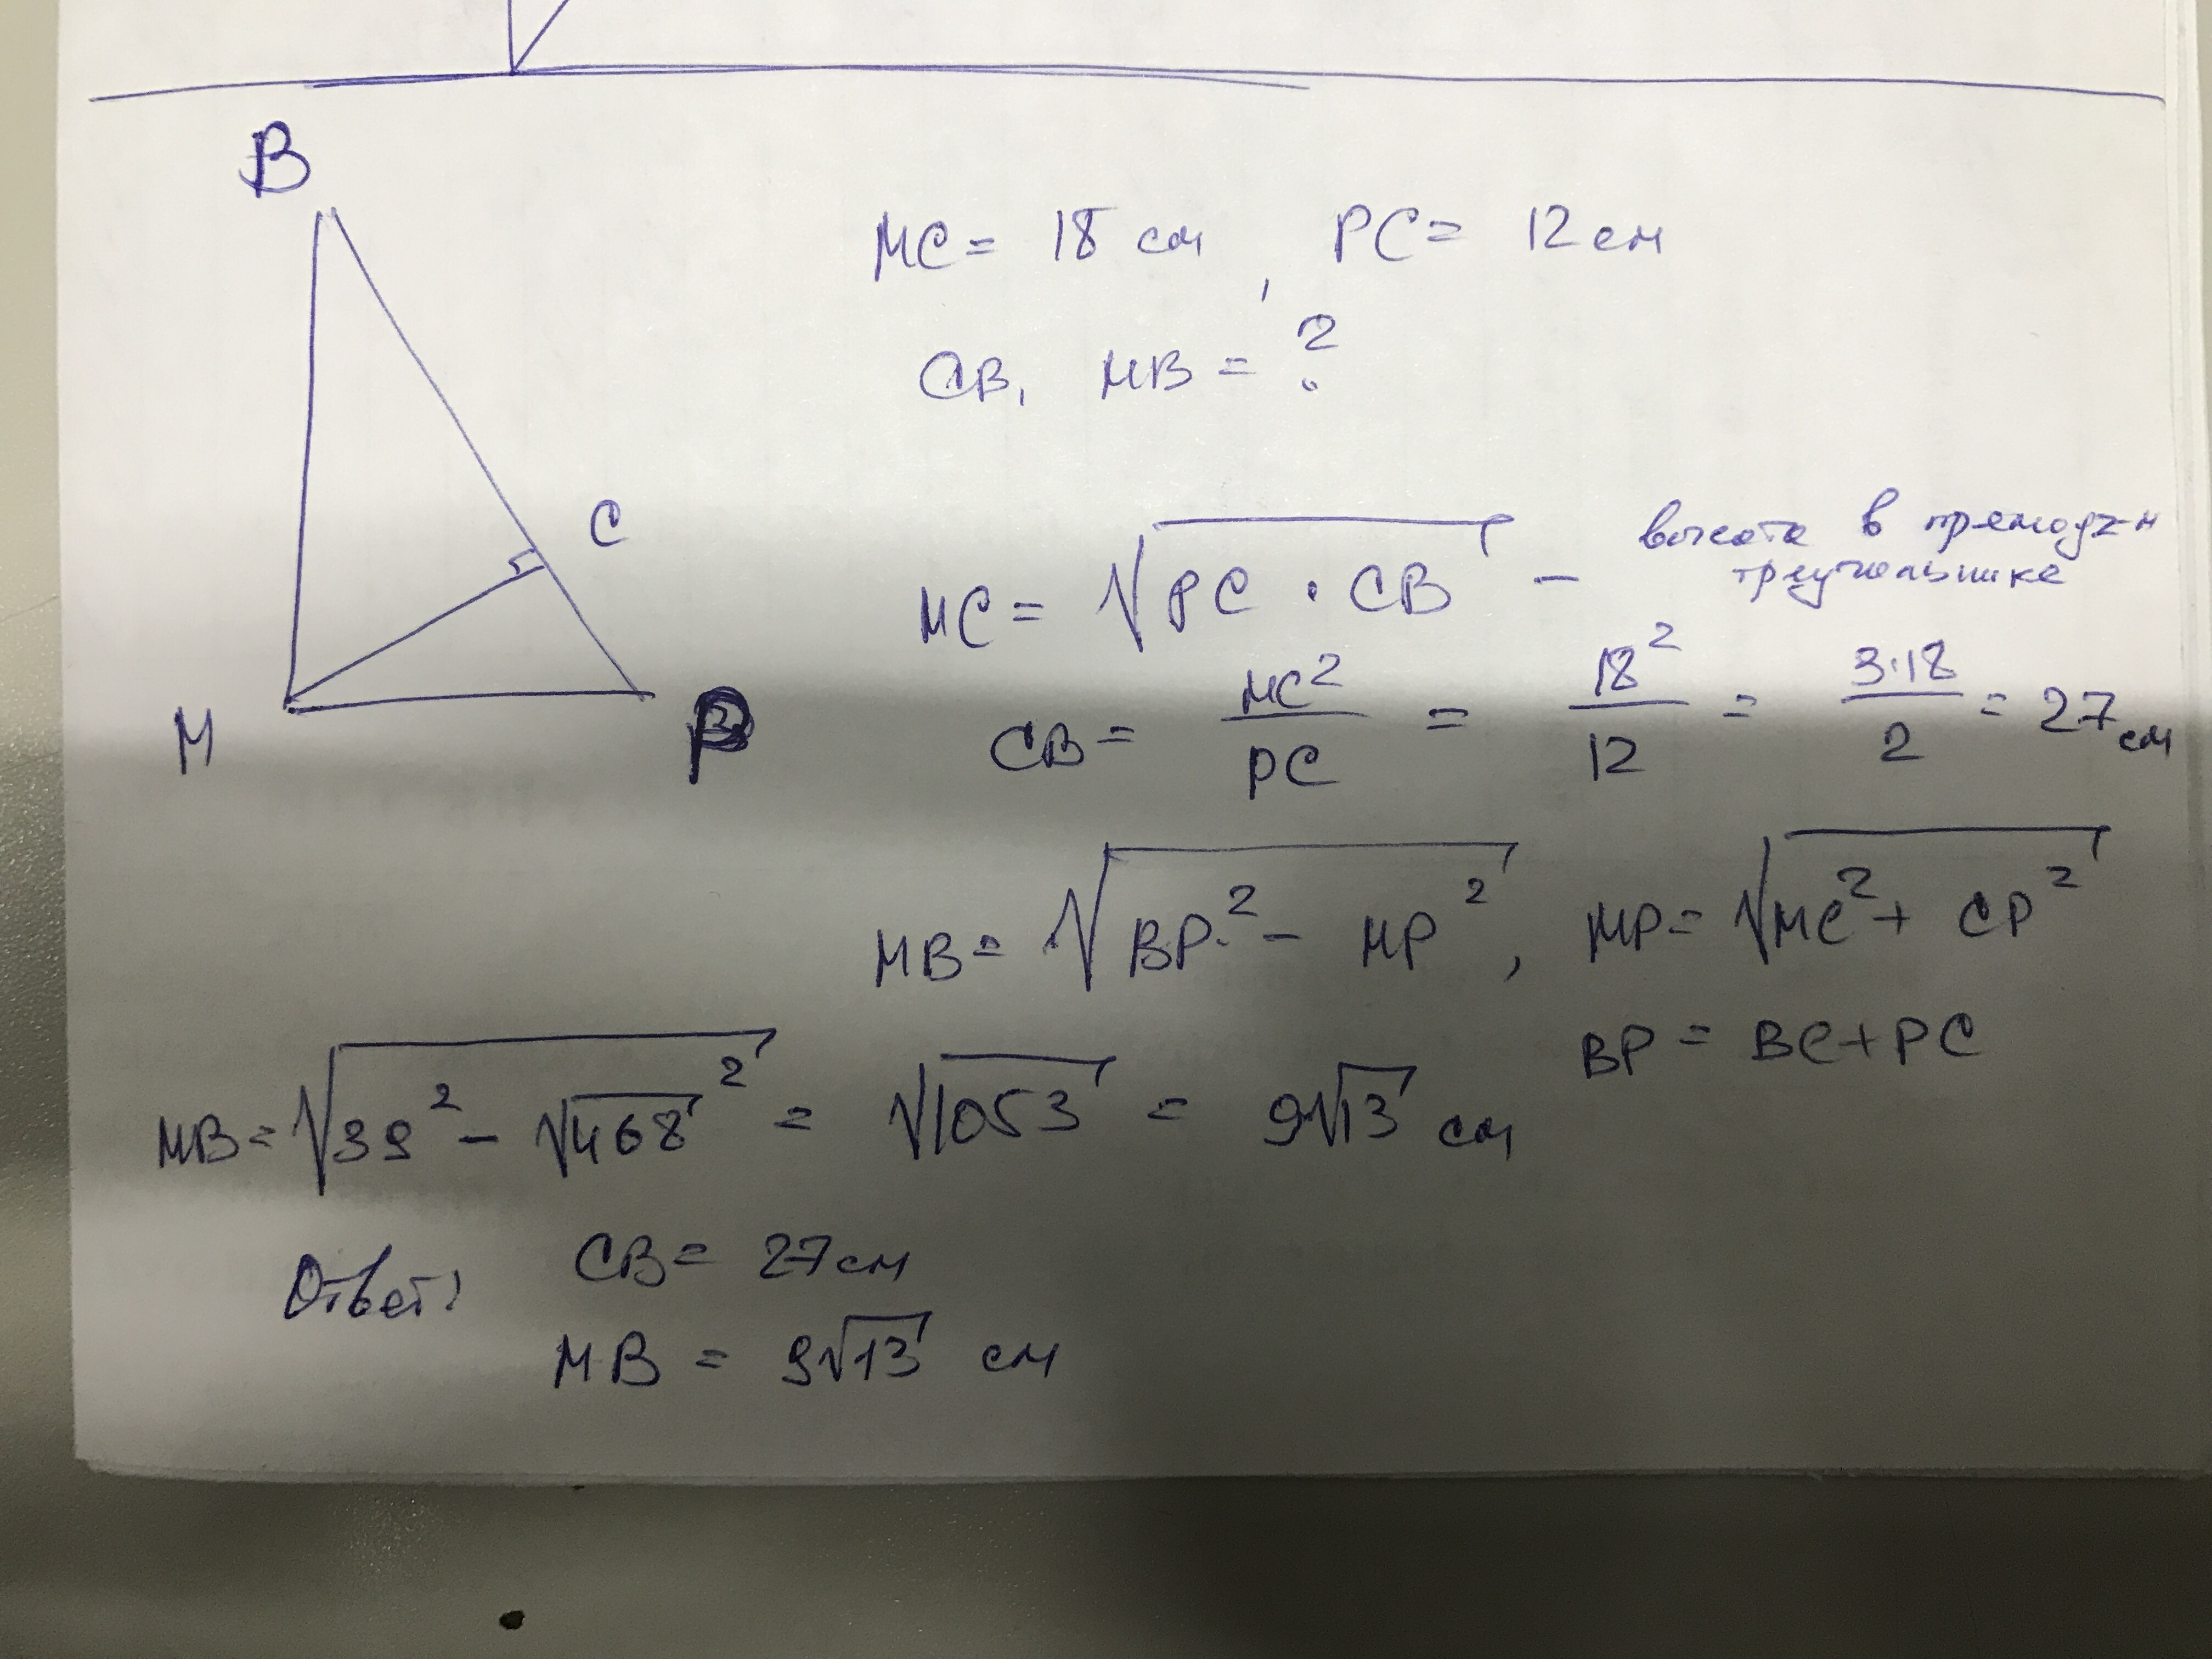 B
MC = 18 см, PC = 12 см
CB, MB = ?
C
MC = √(PC · CB) – высота в прямоуг-м
треугольнике
M
P
CB = MC²/PC = 18²/12 = 3·18/2 = 27 см
MB = √(BP² – MP²), MP = √(MC² + CP²)
BP = BC + PC
MB = √(39² – √468²) = √1053 = 9√13 см
Ответ: CB = 27 см
MB = 9√13 см